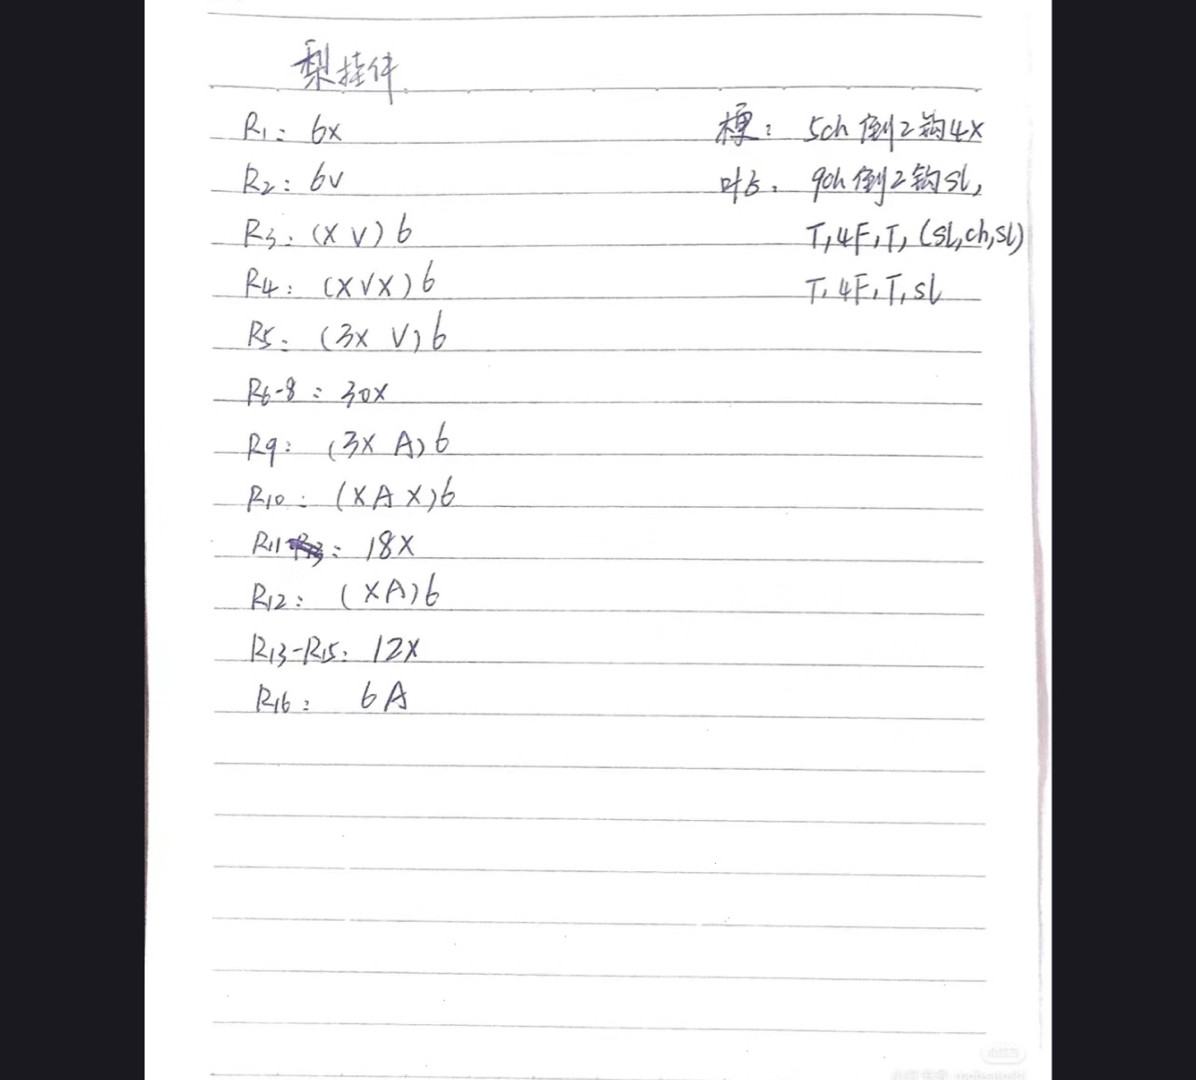 梨挂件
R1: 6x
R2: 6v
R3: (X V) 6
R4: (XVX) 6
R5: (3X V) 6
R6-8: 30X
R9: (3X A) 6
R10: (XAX) 6
R11: 18X
R12: (XA) 6
R13-R15: 12X
R16: 6A
梗: 5ch 倒2钩4X
叶占: 9ch倒2钩sl,
T,4F,T,(sl,ch,sl)
T,4F,T,sl